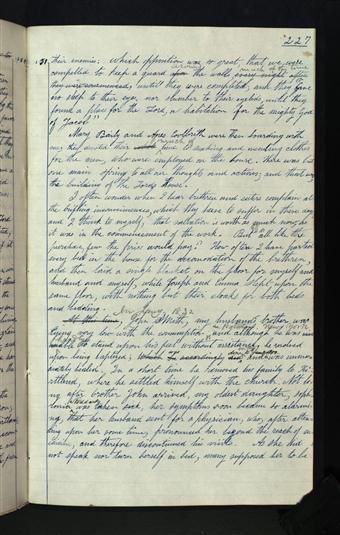 227
31. their enemies; Which opposition was so great that we were
compelled to keep a guard around the walls
until they were completed; and they gave
no sleep to their eyes, nor slumber to their eyelids, until they
found a place for the Lord, a habitation for the mighty God
of Jacob."
Mary Baily and Agnes Coolbrith were then boarding with
me; they devoted their time to making and mending clothes
for the men, who were employed on the house. There was but
one main spring to all our thoughts and actions; and that was
the building of the Lord's House.
I often wonder when I hear brethren and sisters complain at
the trifling inconveniences, which they have to suffer in these days
and I think to myself, that salvation is worth as much now, as
it was in the commencement of the work. But "all like the
purchase, few the price would pay." How often I have parted
every bed in the house for the accommodation of the brethren,
and then laid a single blanket on the floor for myself and
husband and myself, while Joseph and Emma slept upon the
same floor, with nothing but their cloak for both bed
and bedding.
Smith, my husband's brother, was
lying very low with the consumption, and although he was
unable to stand upon his feet without assistance, he resolved
upon being baptized; and was immed-
iately healed. In a short time he removed his family to Ki-
rtland, where he settled himself with the church. Not lo-
ng after brother John arrived, my oldest daughter, Soph-
ronia, was taken sick, her symptoms soon became so alarmi-
ng, that her husband sent for a physician; who, after atten-
ding upon her some time, pronounced her beyond the reach of m-
edicine, and therefore discontinued his visits. As she did
not speak nor turn herself in bed, many supposed her to be